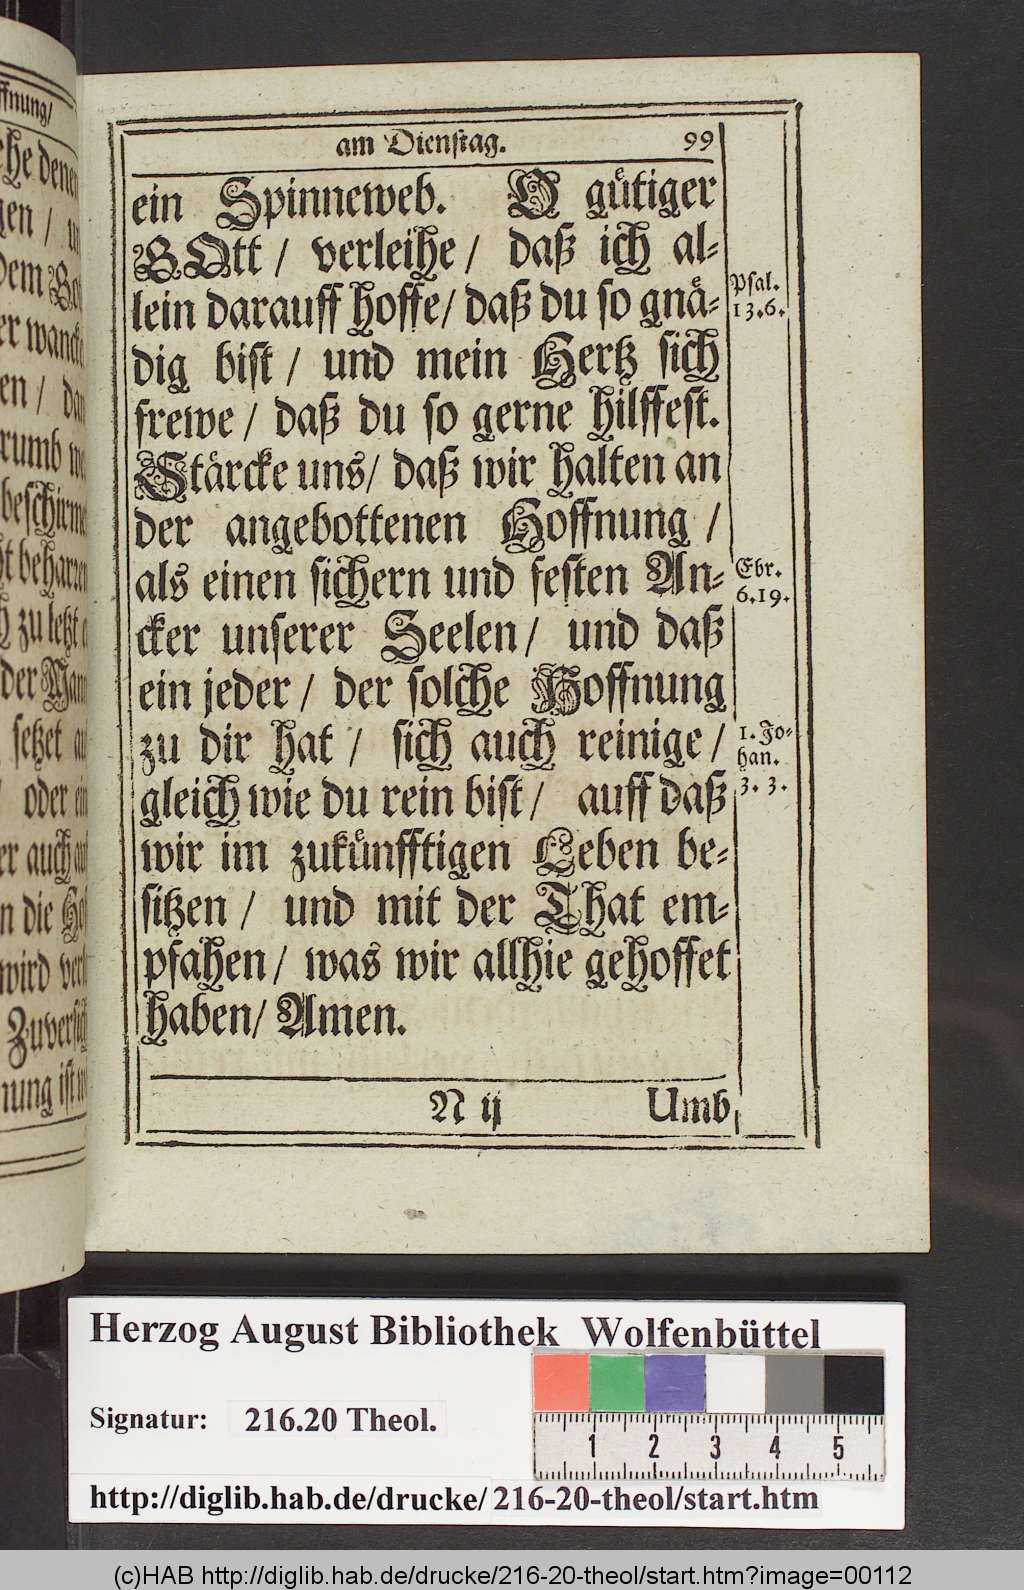 am Dienstag. 99
ein Spinneweb. O gütiger
GOtt / verleihe / daß ich al-
lein darauff hoffe / daß du so gnä-
dig bist / und mein Hertz sich
frewe / daß du so gerne hilffest.
Stärcke uns / daß wir halten an
der angebottenen Hoffnung /
als einen sichern und festen An-
cker unserer Seelen / und daß
ein jeder / der solche Hoffnung
zu dir hat / sich auch reinige /
gleich wie du rein bist / auff daß
wir im zukünfftigen Leben be-
sitzen / und mit der That em-
pfahen / was wir allhie gehoffet
haben / Amen.
Psal.
13.6.
Ebr.
6.19.
1. Jo-
han.
3. 3.
N ij Umb
Herzog August Bibliothek Wolfenbüttel
Signatur: 216.20 Theol.
1 2 3 4 5
http://diglib.hab.de/drucke/216-20-theol/start.htm
(c)HAB http://diglib.hab.de/drucke/216-20-theol/start.htm?image=00112